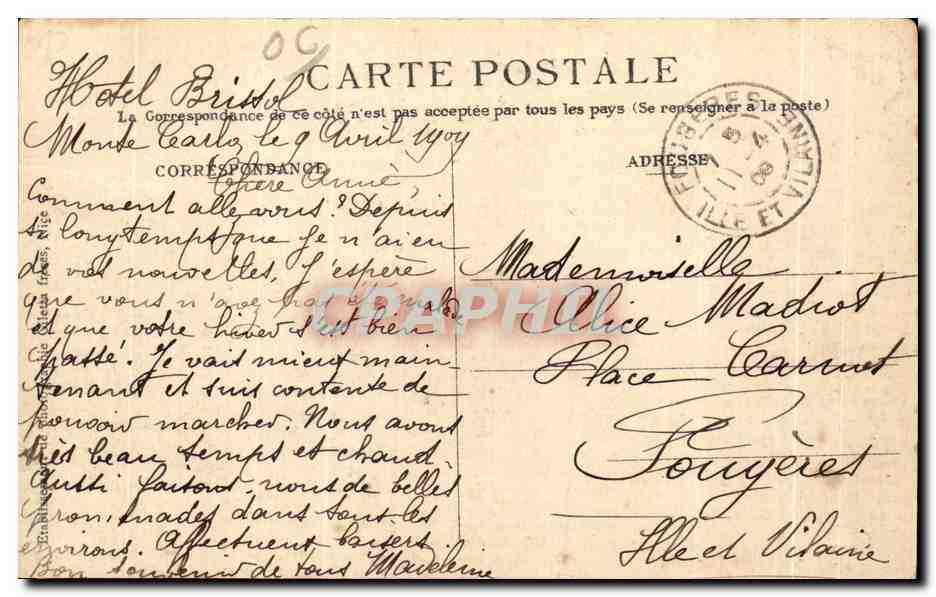 OC
CARTE POSTALE
La Correspondance de ce côté n'est pas acceptée par tous les pays (Se renseigner à la poste)
Hotel Bristol
Monte Carlo, le 9 Avril 1909
CORRESPONDANCE
Chère Anne,
Comment allez vous? Depuis
si longtemps que je n'ai eu
de vos nouvelles, J'espère
que vous n'avez pas été malade
et que votre hiver s'est bien
passé. Je vais mieux main
tenant et suis contente de
pouvoir marcher. Nous avons
très beau temps et chaud
aussi faisons-nous de belles
promenades dans tous les
environs. Affectueux baisers
Bon souvenir de tous Madeleine
ADRESSE
Mademoiselle
Alice Madiot
Place Carnot
Fougères
Ille et Vilaine
FOUGERES
ILLE ET VILAINE
11 -4
09
Etablissements photographie Gilletta frères, Nice
CPAPHIL